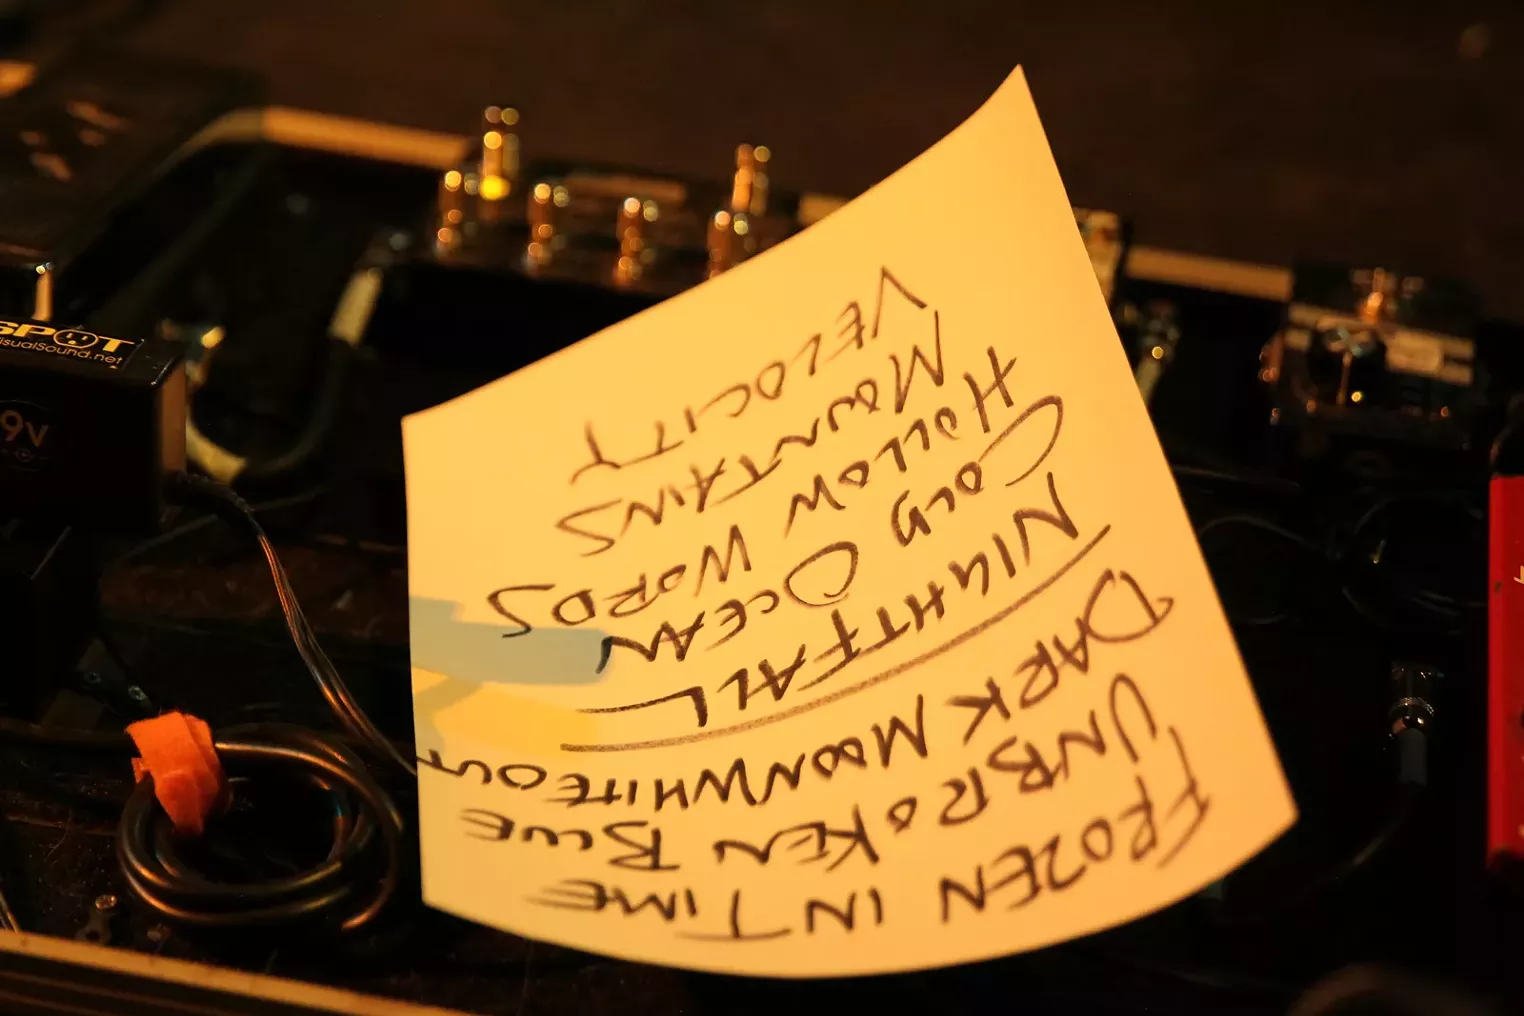 FROZEN IN TIME
UNBROKEN BLUE
DARK MOON WHITEOUT
NIGHTFALL
COLD OCEAN
HOLLOW WORDS
MOUNTAINS
VELOCITY
SPOT
isualSound.net
9V